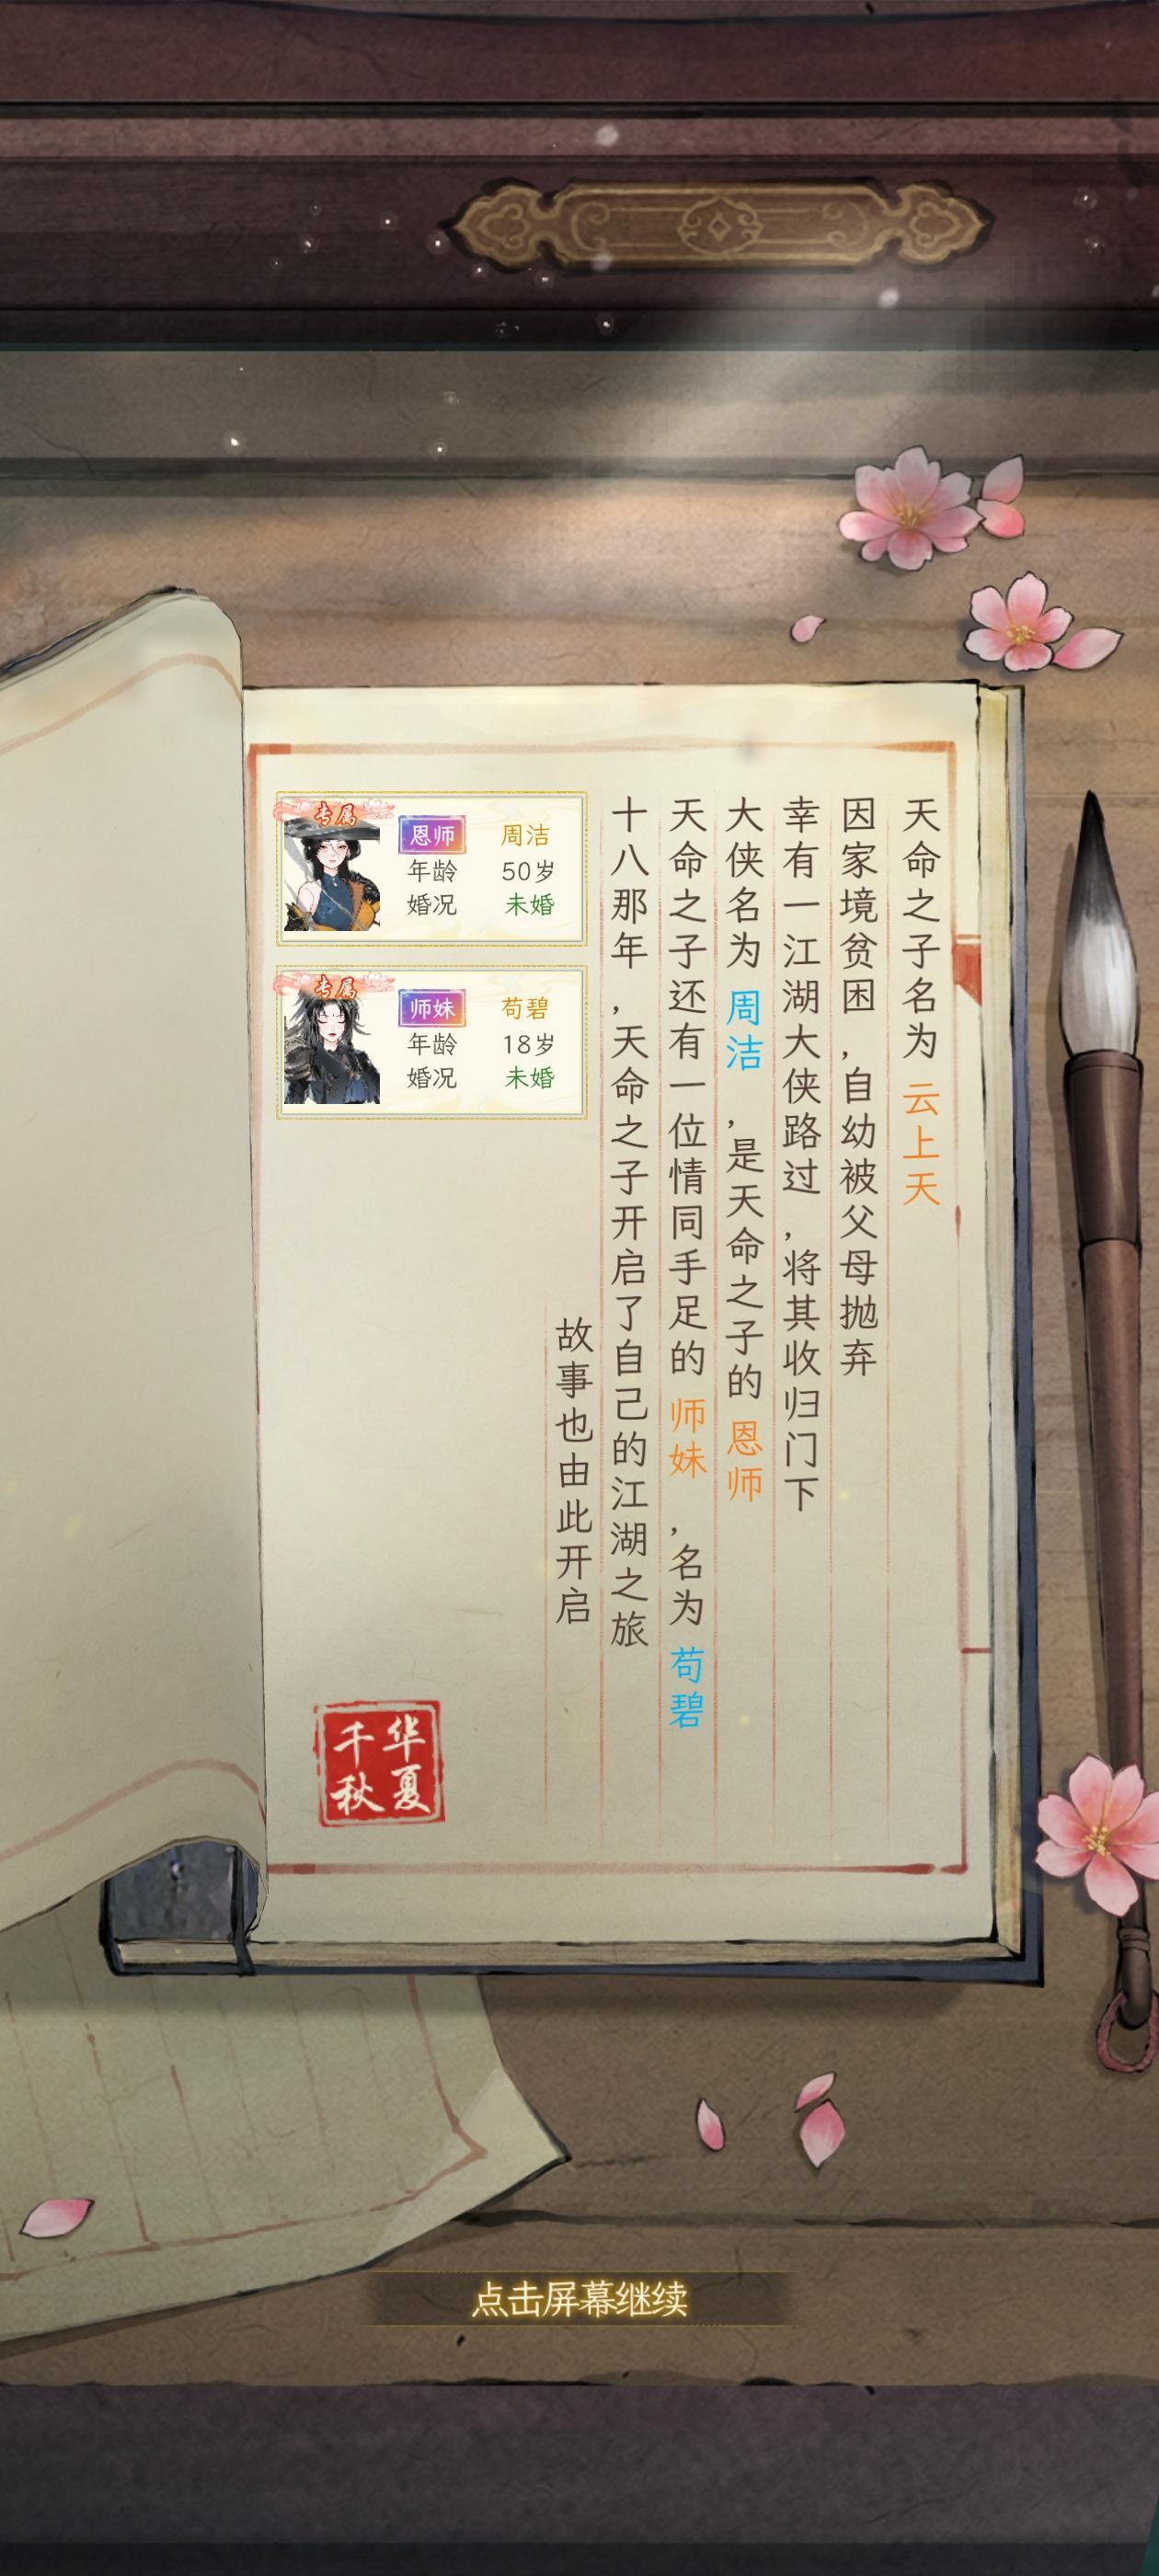 天命之子名为 云上天
因家境贫困,自幼被父母抛弃
幸有一江湖大侠路过,将其收归门下
大侠名为 周洁 ,是天命之子的 恩师
天命之子还有一位情同手足的 师妹 ,名为 苟碧
十八那年,天命之子开启了自己的江湖之旅
故事也由此开启
专属
恩师 周洁
年龄 50岁
婚况 未婚
专属
师妹 苟碧
年龄 18岁
婚况 未婚
华夏
千秋
点击屏幕继续